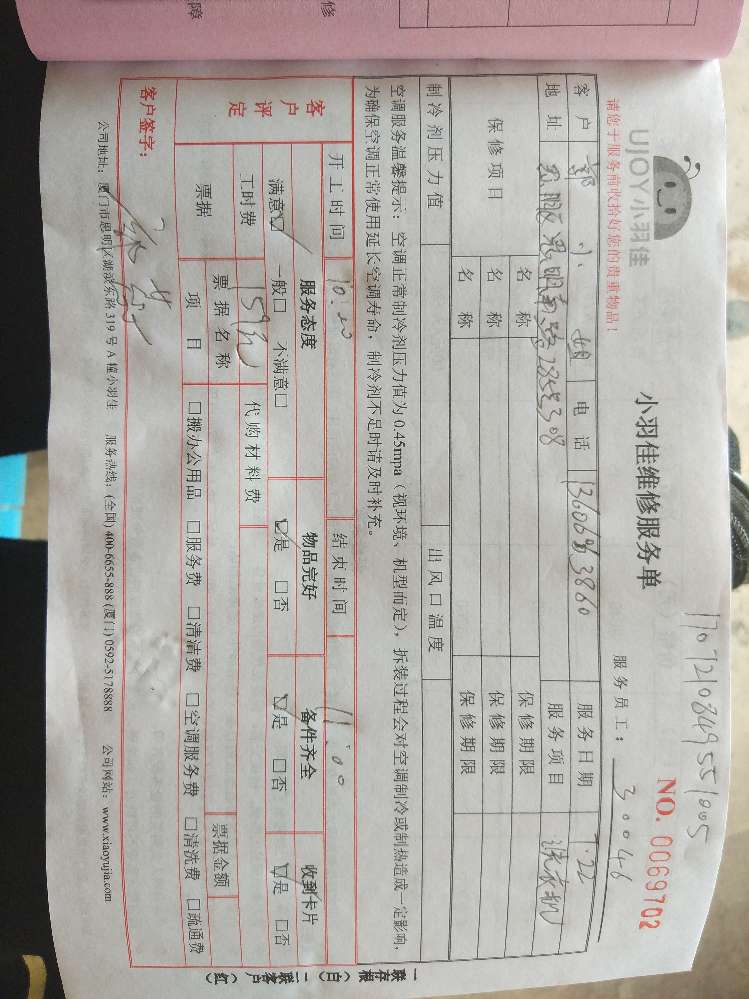 修
障
UJOY小羽佳
17072108495551005
小羽佳维修服务单
NO. 0069702
请您于服务前收拾好您的贵重物品!
服务员工: 30046
客户 郭小姐 电话 服务日期 7.22
地址 服务项目 洗衣机
保修项目 名称 保修期限
名称 保修期限
名称 保修期限
制冷剂压力值 出风口温度
空调服务温馨提示:空调正常制冷剂压力值为 0.45mpa(视环境、机型而定),拆装过程会对空调制冷或制热造成一定影响,
为确保空调正常使用延长空调寿命,制冷剂不足时请及时补充。
开工时间 10:20 结束时间 11:00
客户评定
服务态度 物品完好 备件齐全 收到卡片
满意☑ 一般□ 不满意□ ☑是 □否 ☑是 □否 ☑是 □否
工时费 159元 代购材料费
票据 票据名称 票据金额
项目 □搬办公用品 □服务费 □清洁费 □空调服务费 □清洗费 □疏通费
客户签字:
公司地址:厦门市思明区湖滨东路 319 号 A 幢小羽佳 服务热线:(全国) 400-6655-888 (厦门) 0592-5178888 公司网站:www.xiaoyujia.com
一联存根(白) 二联客户(红)